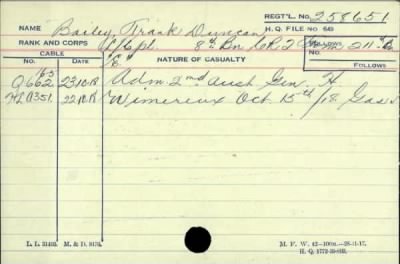 REGT'L. No. 258651
NAME Bailey, Frank Duncan H. Q. FILE No 649
RANK AND CORPS L/Cpl. 8th Bn
CABLE NATURE OF CASUALTY FOLLOWS
No. DATE
Q 662 23.10.18 Adm. 2nd Aust Gen. H.
HL A351. 22.10.18 Wimereux Oct. 15th /18 Gas
L. L. 51493. M. & D. 9174. M. F. W. 42—100m.—28-11-17.
H. Q. 1772-39-893.